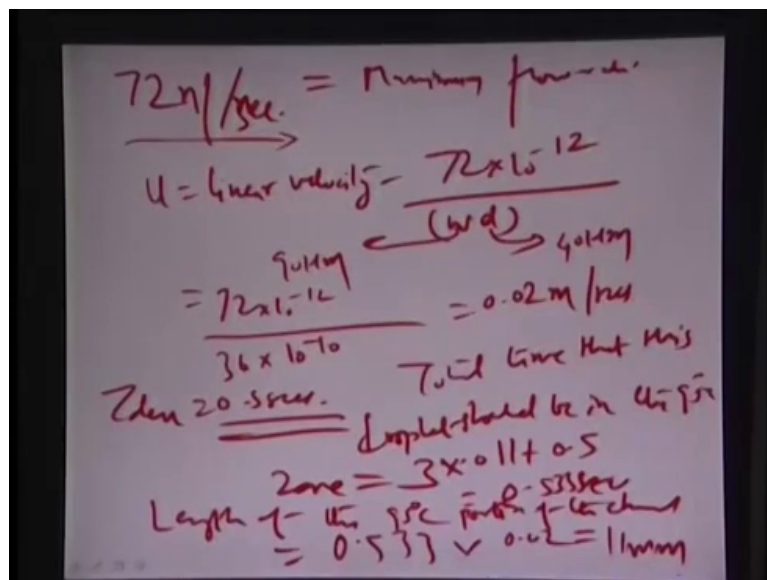 72nl/sec. = Maximum flow rate.
U = linear velocity = 72 x 10^-12
(w d)
90μm 40μm
= 72 x 10^-12 = 0.02 m/sec
36 x 10^-10
Total time that this
20 sec.
droplet should be in the 95c
Zone = 3 x .011 + 0.5
= 0.533 sec
Length of the 95c portion of the channel
= 0.533 x 0.02 = 11mm